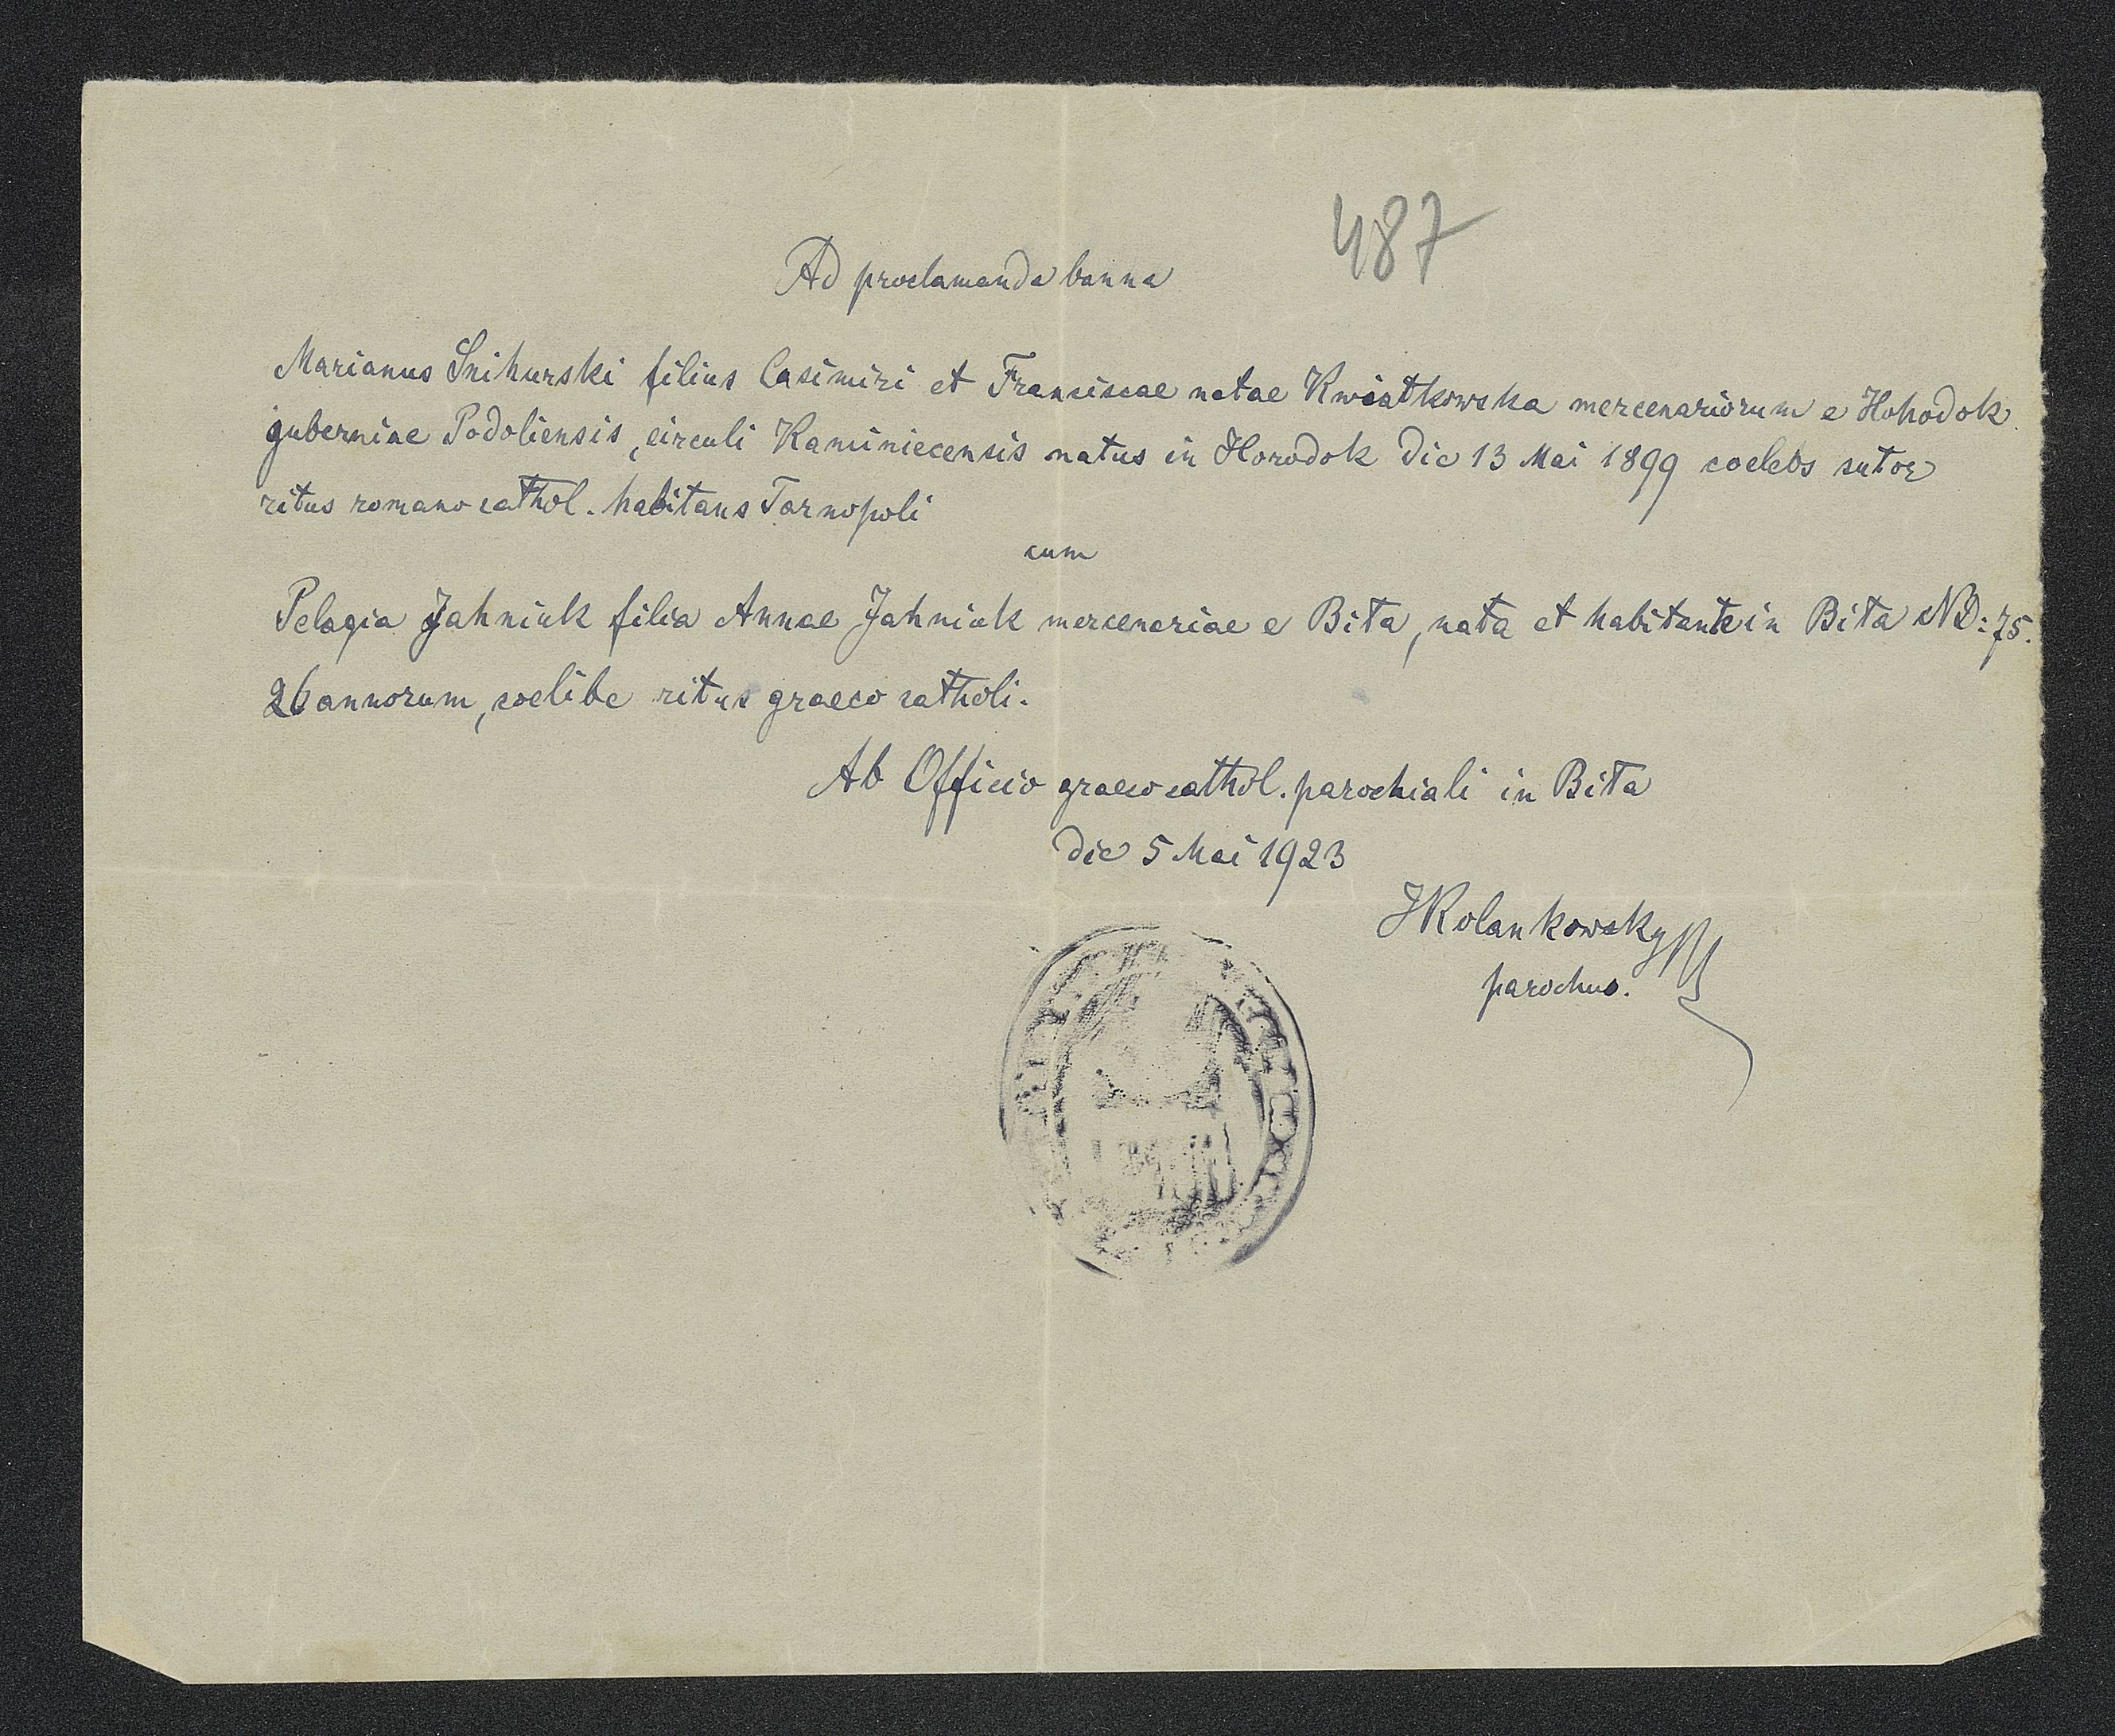 487
Ad proclamanda banna
Marianus Snihurski filius Casimiri et Franciscae natae Kwiatkowska mercenariorum e Hohodok
guberniae Podoliensis, circuli Kaminiecensis natus in Horodok die 13 Mai 1899 coelebs sutor
ritus romano cathol. habitans Tarnopoli
cum
Pelagia Jahniuk filia Annae Jahniuk mercenariae e Bita, nata et habitante in Bita ND: 75.
26 annorum, coelibe ritus graeco catholi.
Ab Officio graeco cathol. parochiali in Bita
die 5 Mai 1923
JKolankowsky
parochus.